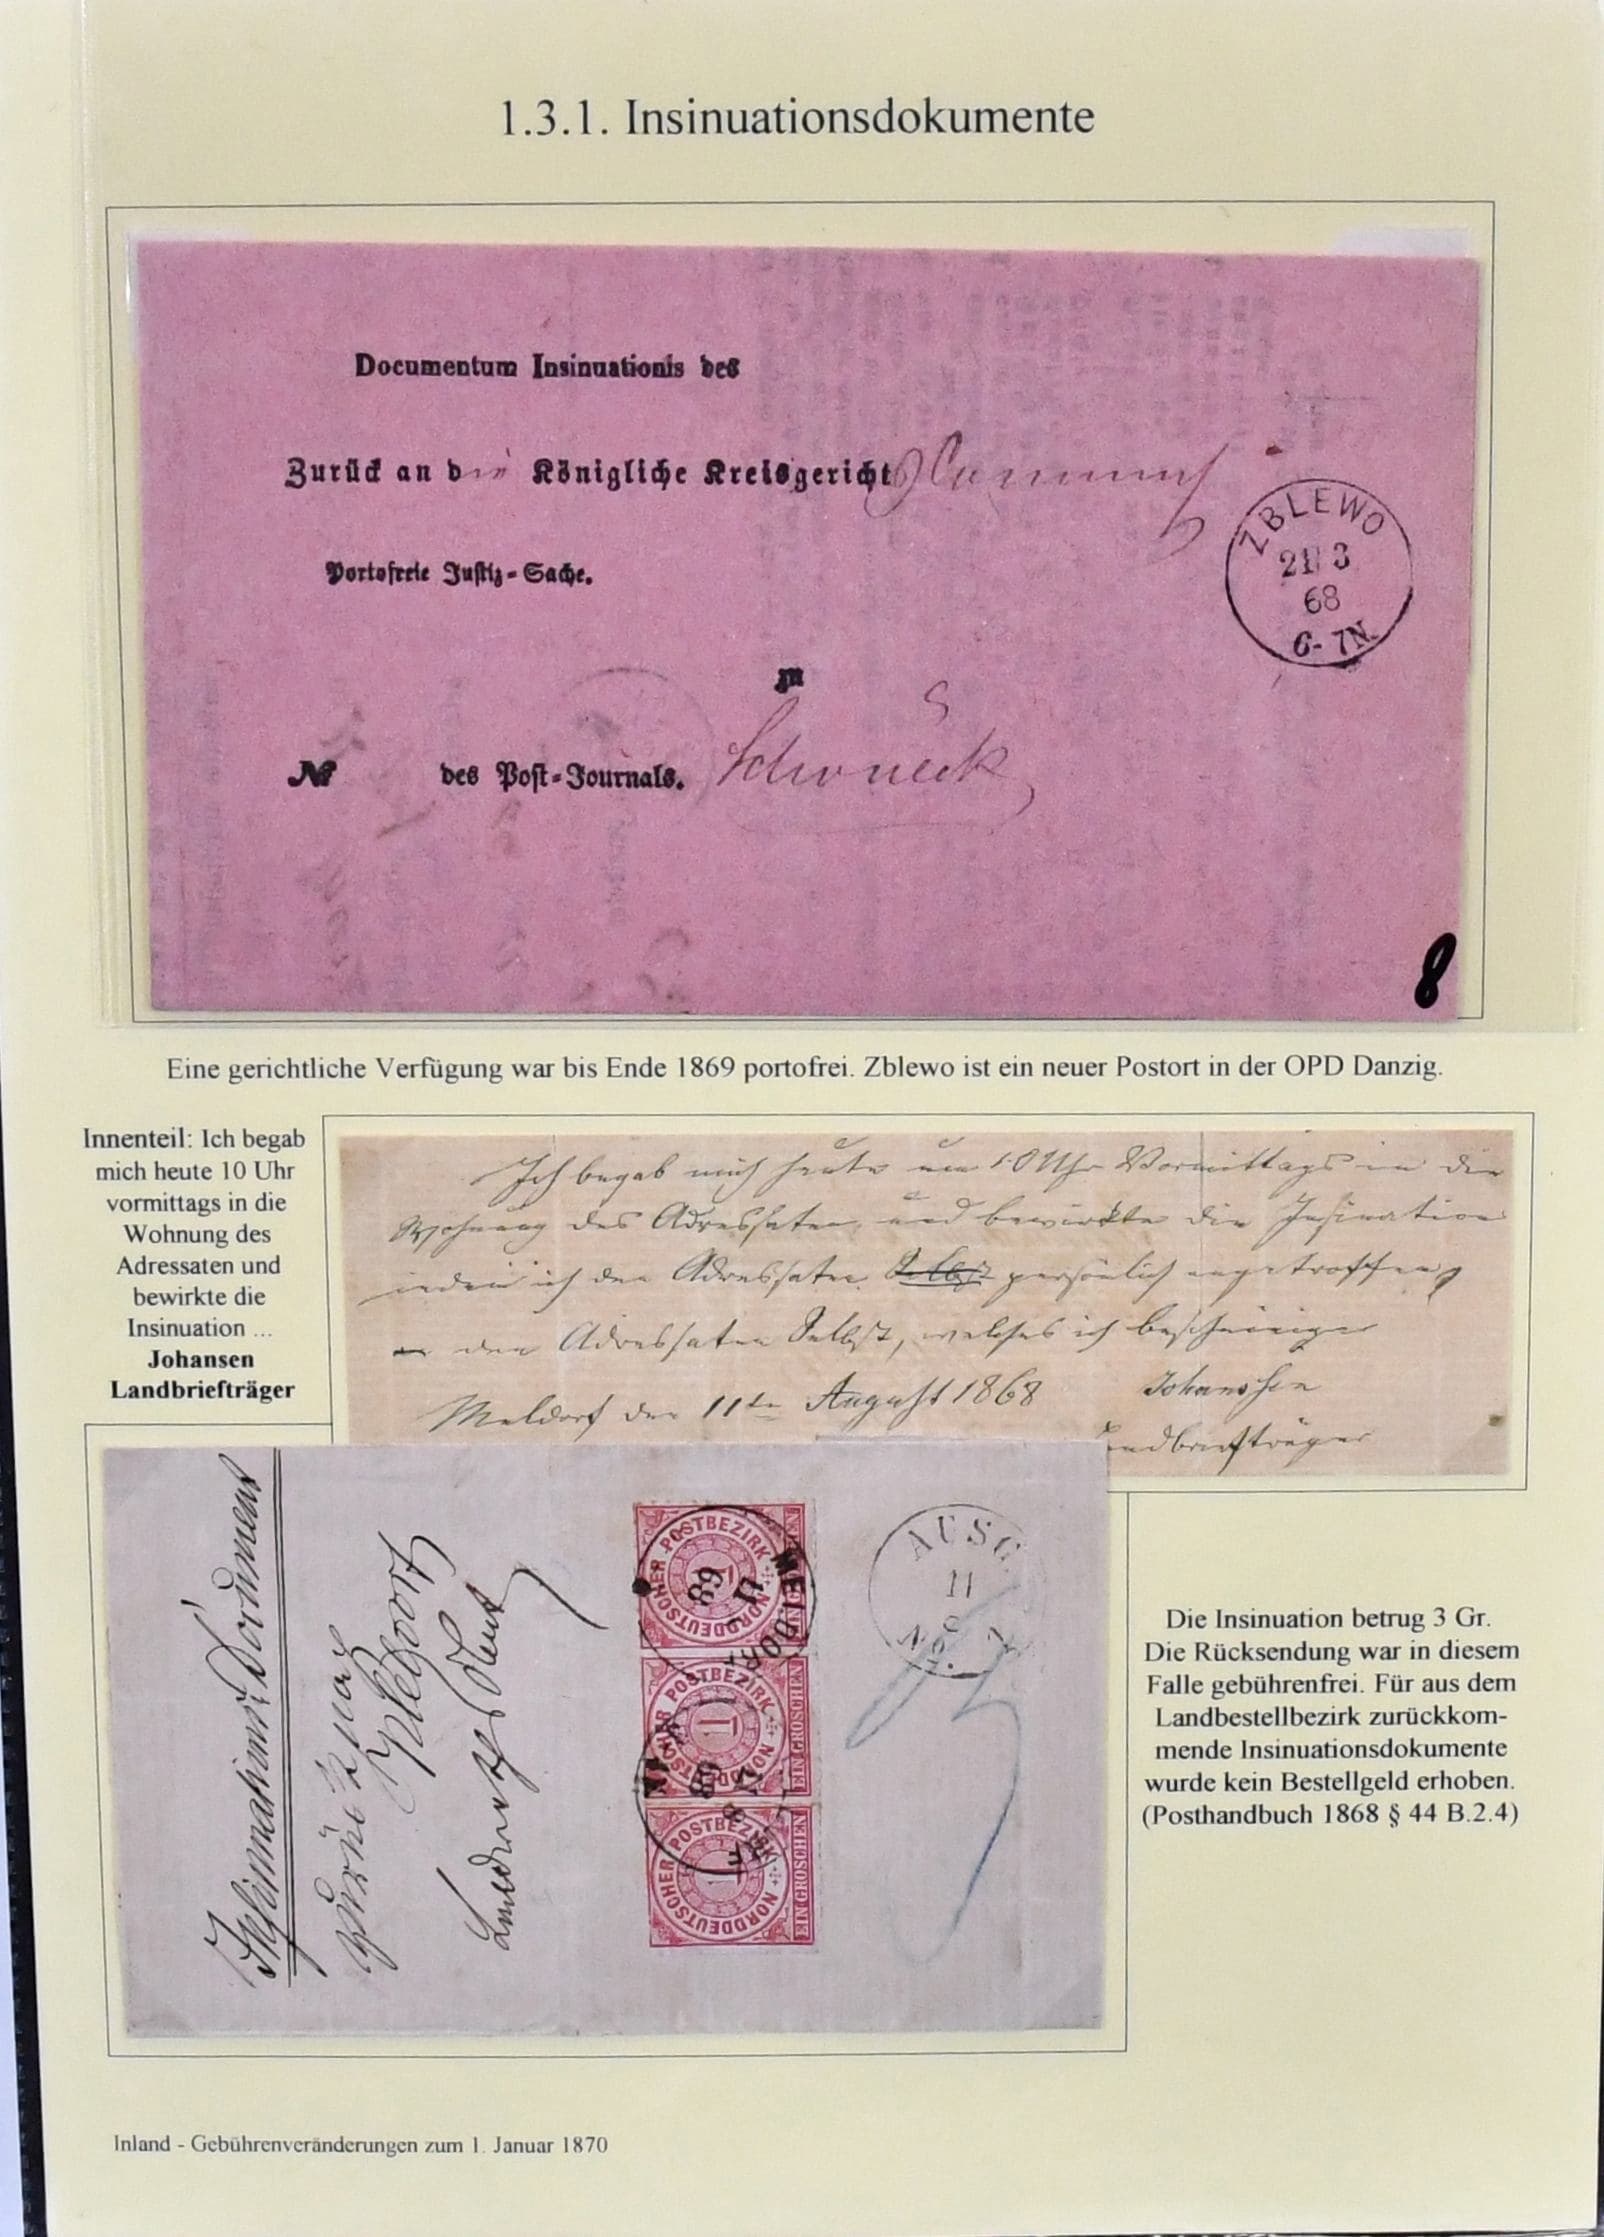 1.3.1. Insinuationsdokumente
Documentum Insinuationis des
Zurück an die Königliche Kreisgericht
Portofreie Justiz-Sache.
ZBLEWO
21 3
68
6-7N
zu
№ des Post-Journals. Schöneck
8
Eine gerichtliche Verfügung war bis Ende 1869 portofrei. Zblewo ist ein neuer Postort in der OPD Danzig.
Innenteil: Ich begab
mich heute 10 Uhr
vormittags in die
Wohnung des
Adressaten und
bewirkte die
Insinuation ...
Johansen
Landbriefträger
Ich begab mich heute um 10 Uhr Vormittags in die
Wohnung des Adressaten, und bewirkte die Insinuation
indem ich den Adressaten Selbst persönlich angetroffen,
den Adressaten Selbst, welches ich bescheinige
Meldorf den 11ten August 1868 Johanssen
Landbriefträger
Insinuations Document
zurück nach
Meldorf
NORDDEUTSCHER POSTBEZIRK
1
EIN GROSCHEN
NORDDEUTSCHER POSTBEZIRK
1
EIN GROSCHEN
NORDDEUTSCHER POSTBEZIRK
1
EIN GROSCHEN
MELDORF
11
68
AUSG
11
No. 1
Die Insinuation betrug 3 Gr.
Die Rücksendung war in diesem
Falle gebührenfrei. Für aus dem
Landbestellbezirk zurückkom-
mende Insinuationsdokumente
wurde kein Bestellgeld erhoben.
(Posthandbuch 1868 § 44 B.2.4)
Inland - Gebührenveränderungen zum 1. Januar 1870